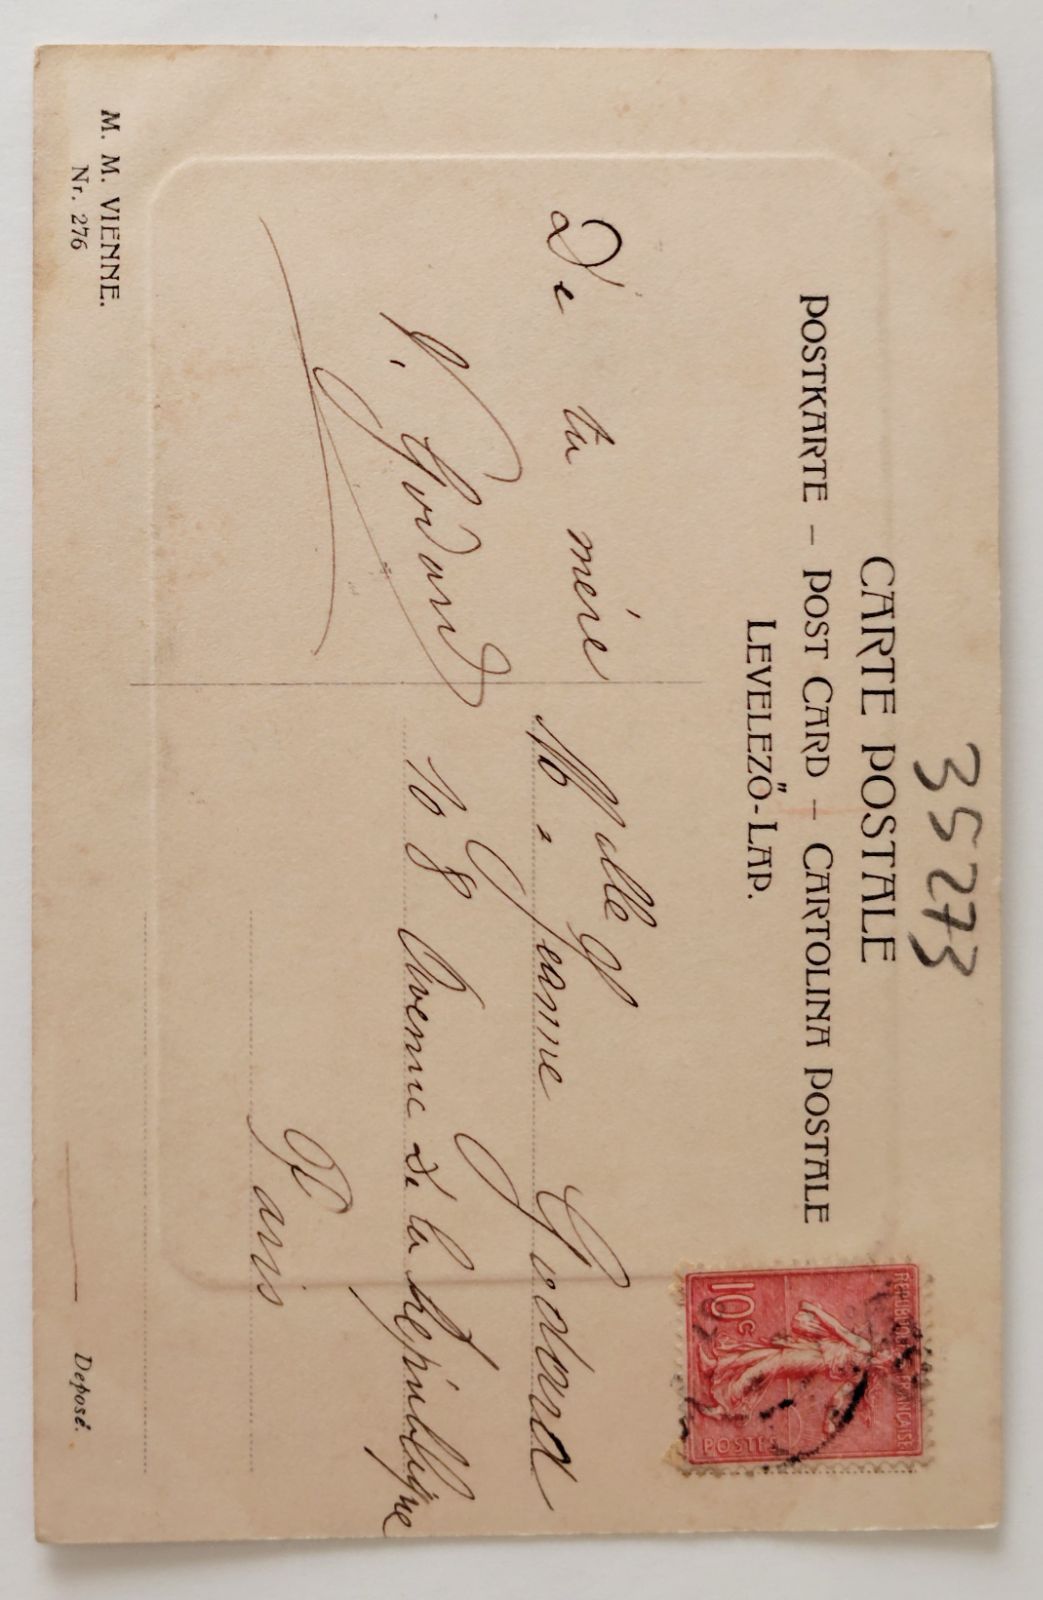 35273
CARTE POSTALE
POSTKARTE – POST CARD – CARTOLINA POSTALE
LEVELEZŐ-LAP.
REPUBLIQUE FRANÇAISE
10c
POSTES
De ta mère
J. Godard
Madelle
Jeanne Godard
108 Avenue de la République
Paris
M. M. VIENNE.
Nr. 276
Deposé.